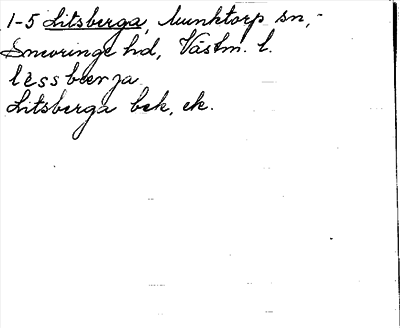 1-5 Litsberga, Munktorp sn,
Snevringe hd, Västm. l.
lèssbærja
Litsberga bek, ek.